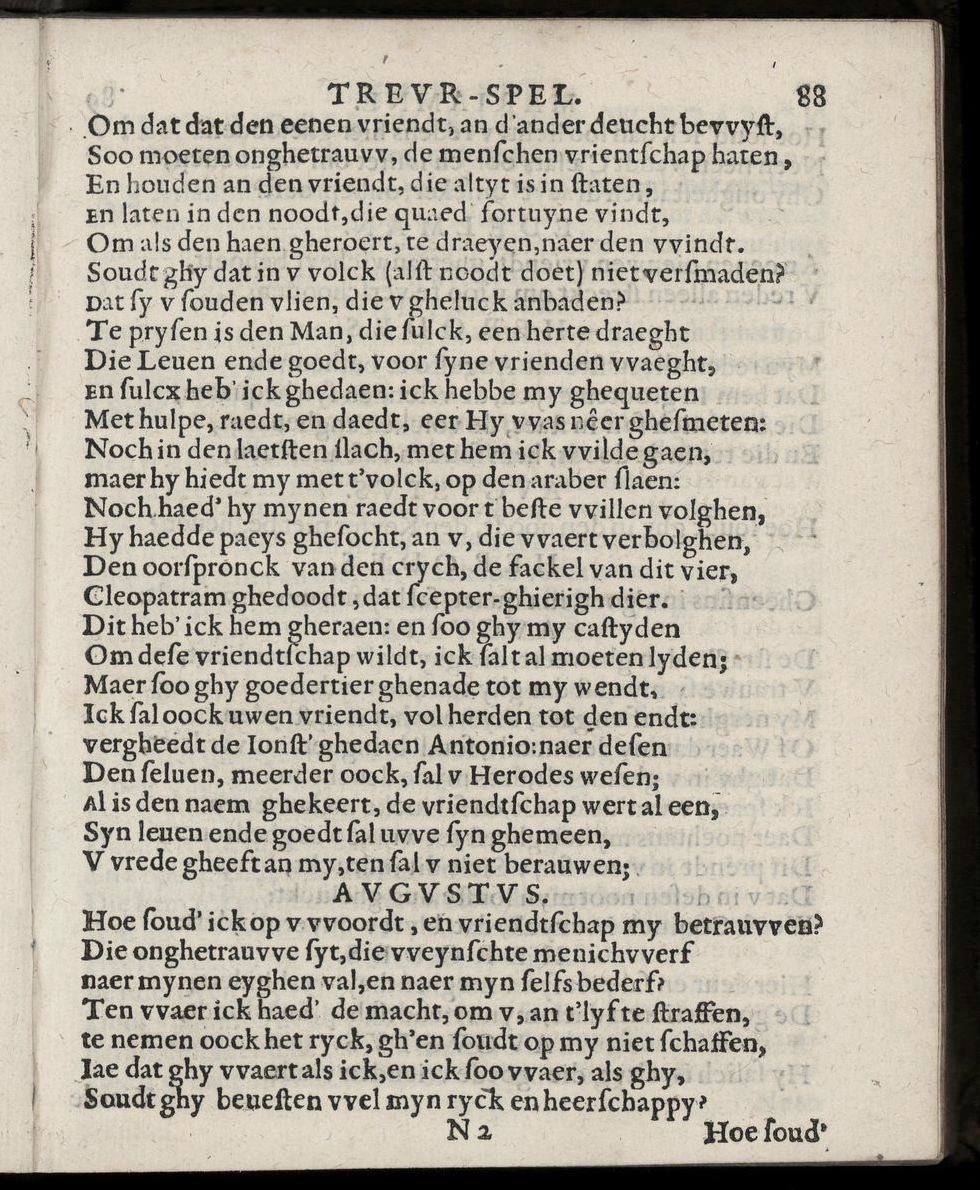 TREVR-SPEL. 88
Om dat dat den eenen vriendt, an d'ander deucht bevvyſt,
Soo moeten onghetrauvv, de menſchen vrientſchap haten,
En houden an den vriendt, die altyt is in ſtaten,
En laten in den noodt, die quaed fortuyne vindt,
Om als den haen gheroert, te draeyen, naer den vvindt.
Soudt ghy dat in v volck (alſt noodt doet) niet verſmaden?
Dat ſy v ſouden vlien, die v gheluck anbaden?
Te pryſen is den Man, die ſulck, een herte draeght
Die Leuen ende goedt, voor ſyne vrienden vvaeght,
En ſulcx heb' ick ghedaen: ick hebbe my ghequeten
Met hulpe, raedt, en daedt, eer Hy vvas nêer gheſmeten:
Noch in den laetſten ſlach, met hem ick vvilde gaen,
maer hy hiedt my met t'volck, op den araber ſlaen:
Noch haed' hy mynen raedt voor t beſte vvillen volghen,
Hy haedde paeys gheſocht, an v, die vvaert verbolghen,
Den oorſpronck van den crych, de fackel van dit vier,
Cleopatram ghedoodt, dat ſcepter-ghierigh dier.
Dit heb' ick hem gheraen: en ſoo ghy my caſtyden
Om deſe vriendtſchap wildt, ick ſalt al moeten lyden;
Maer ſoo ghy goedertier ghenade tot my wendt,
Ick ſal oock uwen vriendt, vol herden tot den endt:
vergheedt de Ionſt' ghedaen Antonio: naer deſen
Den ſeluen, meerder oock, ſal v Herodes weſen;
Al is den naem ghekeert, de vriendtſchap wert al een,
Syn leuen ende goedt ſal uvve ſyn ghemeen,
V vrede gheeft an my, ten ſal v niet berauwen;
AVGVSTVS.
Hoe ſoud' ick op v vvoordt, en vriendtſchap my betrauvven?
Die onghetrauvve ſyt, die vveynſchte menichvverf
naer mynen eyghen val, en naer myn ſelfs bederf?
Ten vvaer ick haed' de macht, om v, an t'lyf te ſtraffen,
te nemen oock het ryck, gh'en ſoudt op my niet ſchaffen,
Iae dat ghy vvaert als ick, en ick ſoo vvaer, als ghy,
Soudt ghy beueſten vvel myn ryck en heerſchappy?
N 2 Hoe ſoud'